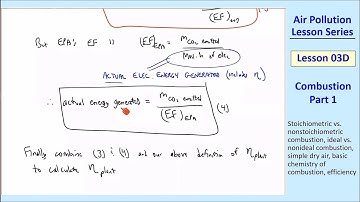 (EF)
But EPA's EF is (EF)EPA = mCO2 emitted / MW.h of elec
ACTUAL ELEC. ENERGY GENERATED (includes η)
∴ actual energy generated = mCO2 emitted / (EF)EPA (4)
Finally combine (3) & (4) and our above definition of ηplant
to calculate ηplant
Air Pollution
Lesson Series
Lesson 03D
Combustion
Part 1
Stoichiometric vs.
nonstoichiometric
combustion, ideal vs.
nonideal combustion,
simple dry air, basic
chemistry of
combustion, efficiency